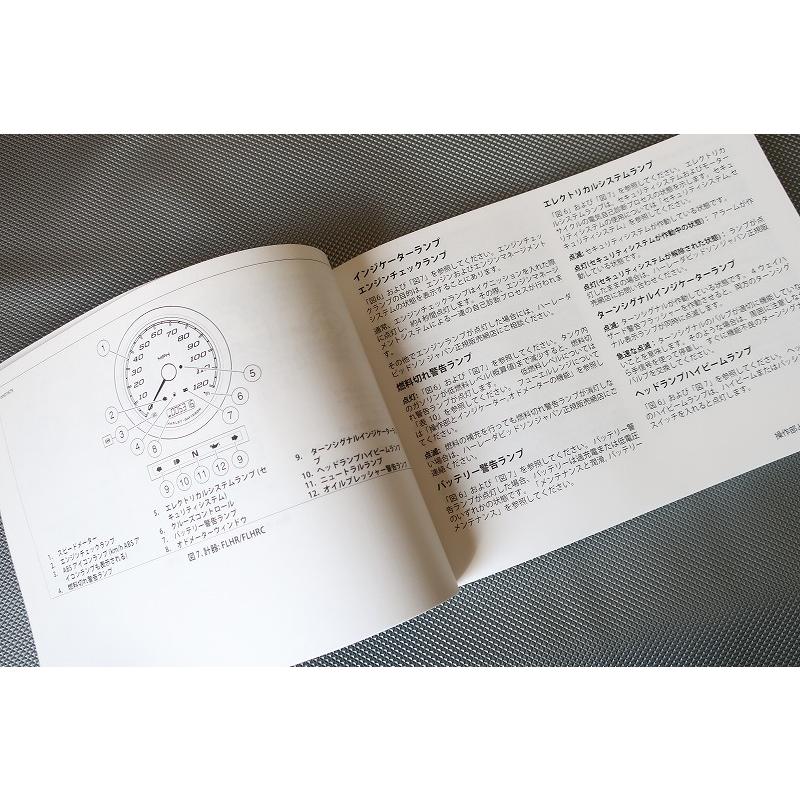 10
20
30
40
50
60
70
80
90
100
110
120
MPH
1
2
3
4
8
5
6
7
N
9
10
11
12
9
1. スピードメーター
2. エンジンチェックランプ
3. ABSアイコンランプ (km/h ABSア
イコンランプも表示される)
4. 燃料切れ警告ランプ
5. エレクトリカルシステムランプ (セ
キュリティシステム)
6. クルーズコントロール
7. バッテリー警告ランプ
8. オドメーターウィンドウ
9. ターンシグナルインジケーター
プ
10. ヘッドランプハイビームランプ
11. ニュートラルランプ
12. オイルプレッシャー警告ランプ
図7. 計器: FLHR/FLHRC
インジケーターランプ
エンジンチェックランプ
「図6」および「図7」を参照してください。エンジンチェッ
クランプの目的は、エンジンおよびエンジンマネージメント
システムの状態を表示することにあります。
通常、エンジンチェックランプはイグニッションを入れた際
に点灯し、約4秒間点灯します。その際、エンジンマネージ
メントシステムによる一連の自己診断プロセスが行われま
す。
その他でエンジンランプが点灯した場合には、ハーレーダ
ビッドソンジャパン正規販売網店にご相談ください。
燃料切れ警告ランプ
点灯: 「図6」および「図7」を参照してください。タンク内
のガソリンが低燃料レベル(概算値)まで減少すると、燃料切
れ警告ランプが点灯します。低燃料レベルについては
「表10」を参照してください。フューエルレンジについて
は「操作部とインジケーター, オドメーターの機能」を参照し
てください。
点滅: 燃料の補充を行っても燃料切れ警告ランプが消灯しな
い場合は、ハーレーダビッドソンジャパン正規販売網店にご
連絡ください。
バッテリー警告ランプ
「図6」および「図7」を参照してください。バッテリー警
告ランプが点灯した場合、バッテリーは過充電または低電圧
のいずれかの状態です。「メンテナンスと潤滑, バッテリー
メンテナンス」を参照してください。
エレクトリカルシステムランプ
「図6」および「図7」を参照してください。エレクトリカ
ルシステムランプは、セキュリティシステムおよびモーター
サイクルの電気自己診断プロセスの状態を示します。セキュ
リティシステムの使用については「セキュリティシステム, セ
キュリティシステム」を参照してください。
点滅: セキュリティシステムが作動している状態です。
点灯(セキュリティシステムが作動中の状態): アラームが作
動している状態です。
点灯(セキュリティシステムが解除された状態): ランプが点
灯したままの場合は、ハーレーダビッドソンジャパン正規販
売網店にお問い合わせください。
ターンシグナルインジケーターランプ
点滅: ターンシグナルが作動している状態です。4ウェイハ
ザードフラッシャーを作動させると、両方のターンシグ
ナル表示ランプが同時に点滅します。
急速な点滅: ターンシグナルのバルブが適切に機能してい
ないことを意味します。
バルブを交換してください。
ヘッドランプハイビームランプ
「図6」および「図7」を参照してください。
スイッチを入れると点灯します。
操作部